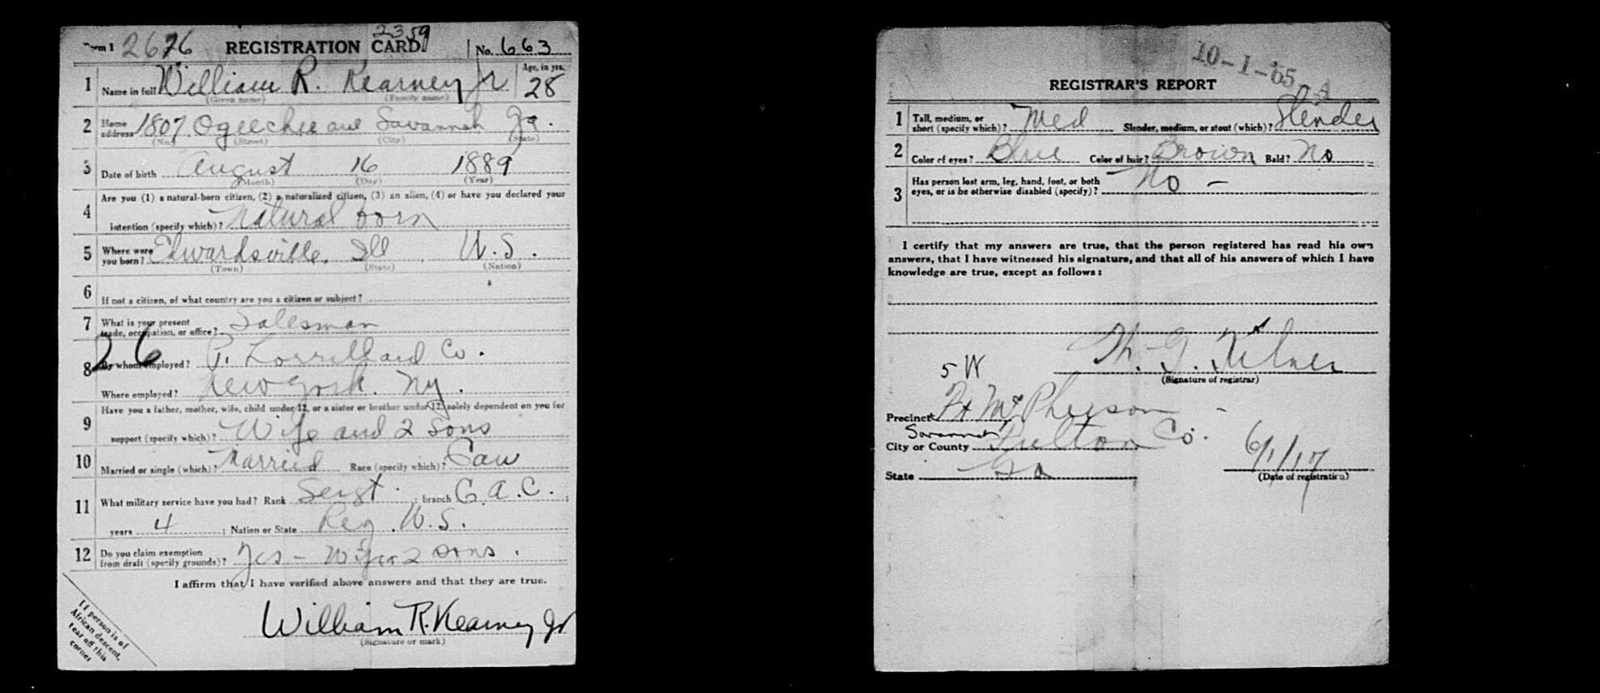 Form 1 2676 REGISTRATION CARD 2359 No. 663
1 Name in full William R. Kearney Jr Age, in yrs. 28
(Given name) (Family name)
2 Home address 1807 Ogeechee ave Savannah Ga.
(No.) (Street) (City) (State)
3 Date of birth August 16 1889
(Month) (Day) (Year)
Are you (1) a natural-born citizen, (2) a naturalized citizen, (3) an alien, (4) or have you declared your
4 intention (specify which)? Natural born
5 Where were you born? Edwardsville, Ill U.S.
(Town) (State) (Nation)
6 If not a citizen, of what country are you a citizen or subject?
7 What is your present trade, occupation, or office? Salesman
26
8 By whom employed? P. Lorrillard Co.
Where employed? New York. Ny.
Have you a father, mother, wife, child under 12, or a sister or brother under 12, solely dependent on you for
9 support (specify which)? Wife and 2 sons
10 Married or single (which)? Married Race (specify which)? Cau
11 What military service have you had? Rank Sergt. ; branch C.A.C. ;
years 4 ; Nation or State Reg. U.S.
12 Do you claim exemption from draft (specify grounds)? Yes - Wife 2 sons.
I affirm that I have verified above answers and that they are true.
William R. Kearney Jr
(Signature or mark)
If person is of
African descent,
tear off this
corner
10-1-65 A
REGISTRAR'S REPORT
1 Tall, medium, or short (specify which)? Med Slender, medium, or stout (which)? Slender
2 Color of eyes? Blue Color of hair? Brown Bald? No
3 Has person lost arm, leg, hand, foot, or both eyes, or is he otherwise disabled (specify)? No -
I certify that my answers are true, that the person registered has read his own
answers, that I have witnessed his signature, and that all of his answers of which I have
knowledge are true, except as follows:
(Signature of registrar)
5 W
Precinct Ft McPherson -
Savannah
City or County Fulton Co.
State Ga
6/1/17
(Date of registration)